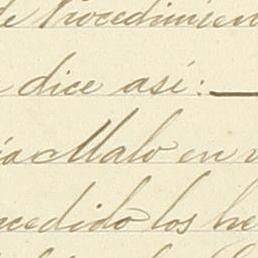 de Procedimien
dice así:
ía Malo en v
ncedido los he